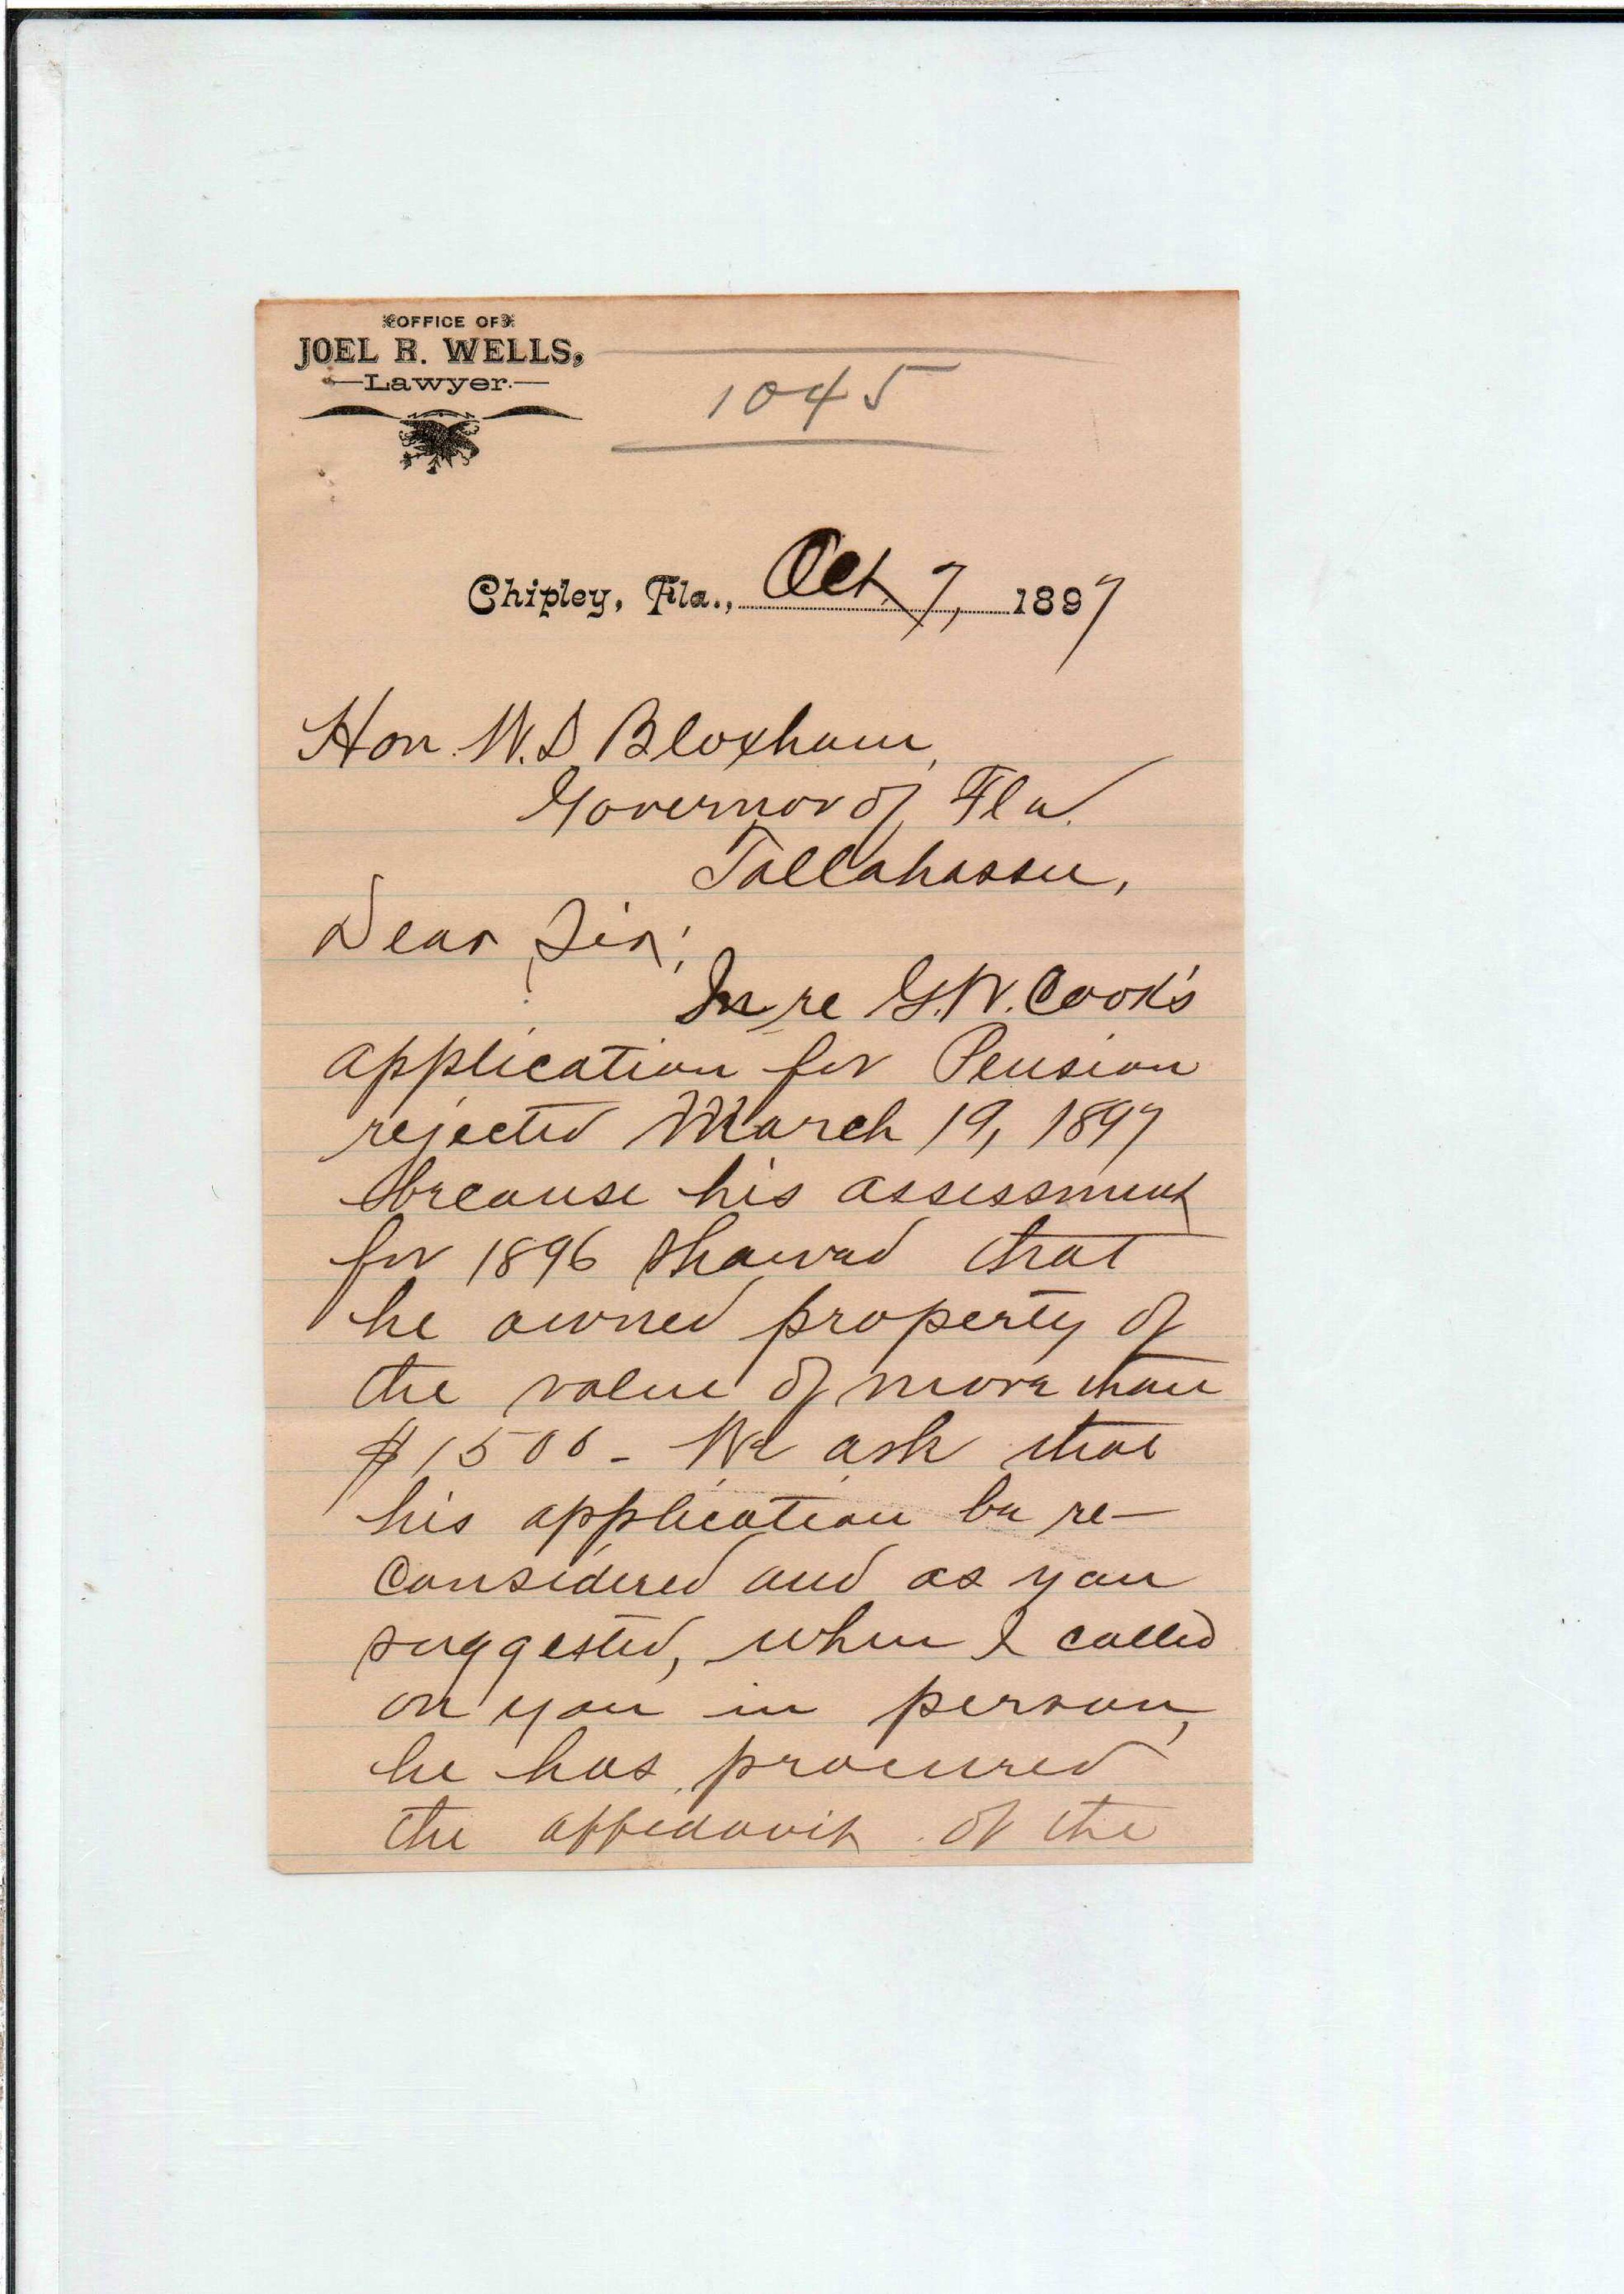 OFFICE OF
JOEL R. WELLS,
Lawyer.
1045
Chipley, Fla., Oct. 7, 1897
Hon. W. D Bloxham,
Governor of Fla.
Tallahassee,
Dear Sir;
In re G. W. Cook's
application for Pension
rejected March 19, 1897
because his assessment
for 1896 showed that
he owned property of
the value of more than
$1500 - We ask that
his application be re-
considered and as you
suggested, when I called
on you in person,
he has procured
the affidavit of the